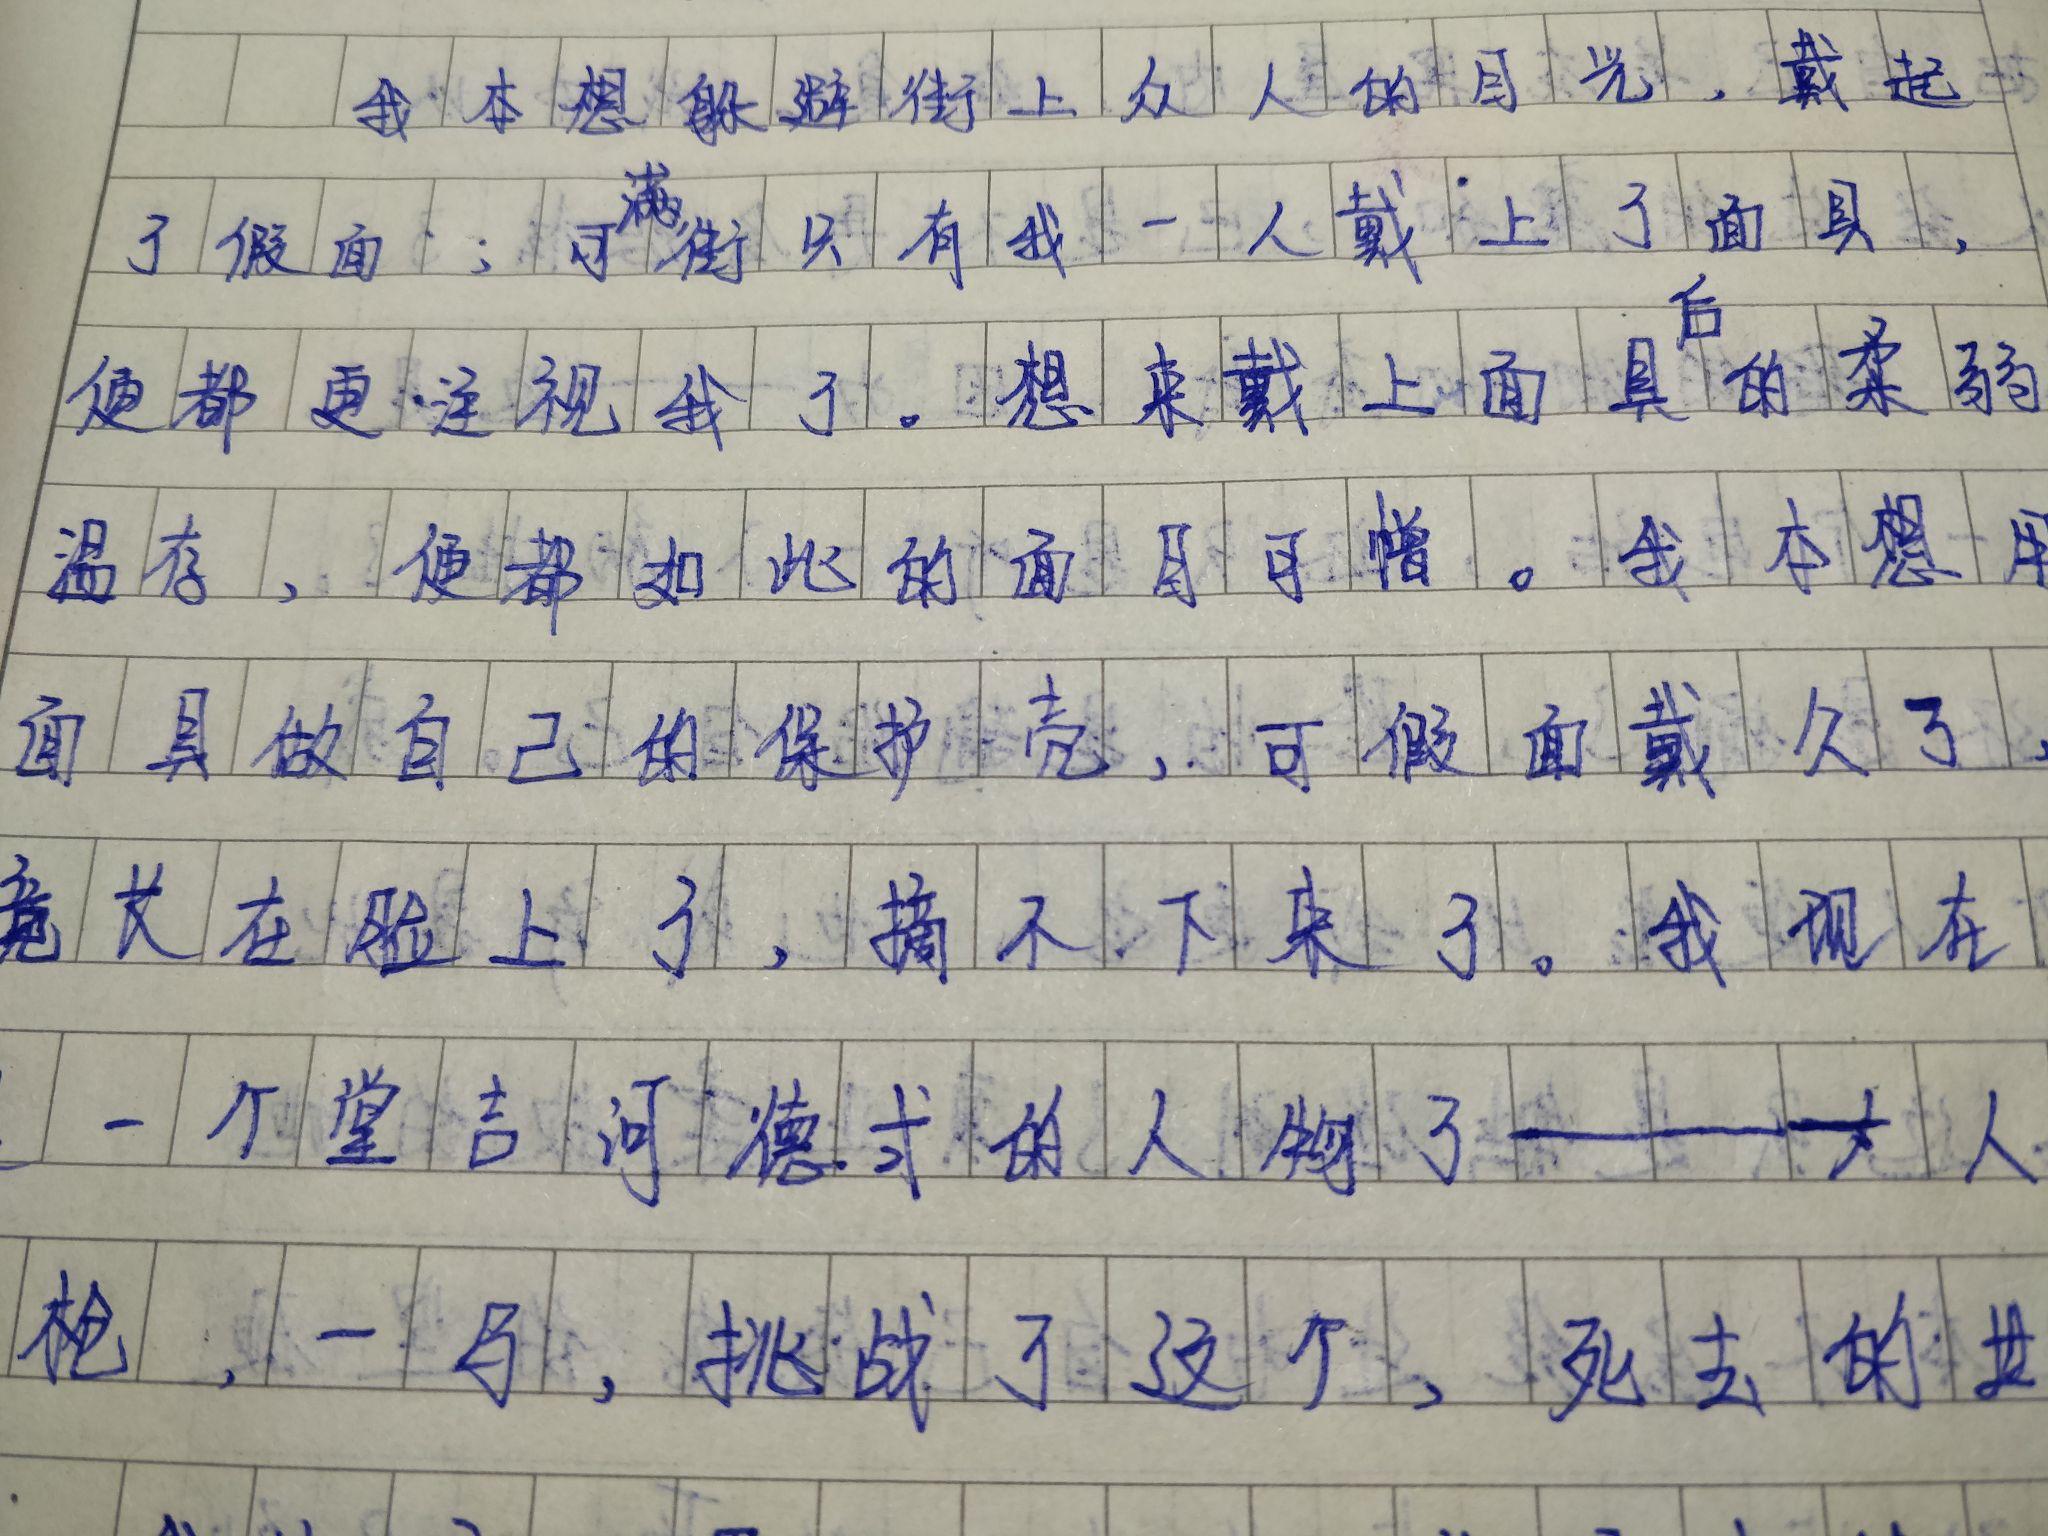 我本想躲避街上众人的目光，戴起
了假面；可满街只有我一人戴上了面具，
便都更注视我了。想来戴上面具后的柔弱
温存，便都如此的面目可憎。我本想用
面具做自己的保护壳，可假面戴久了，
竟长在脸上了，摘不下来了。我现在
一个堂吉诃德式的人物了——一人
枪，一马，挑战了这个，死去的世